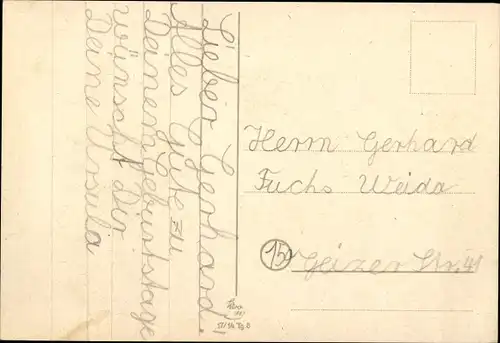 Lieber Gerhard.
Alles Gute zu
Deinem Geburtstage
wünscht Dir
Deine Ursula
Herrn Gerhard
Fuchs Weida
15
Geizer Str. 41